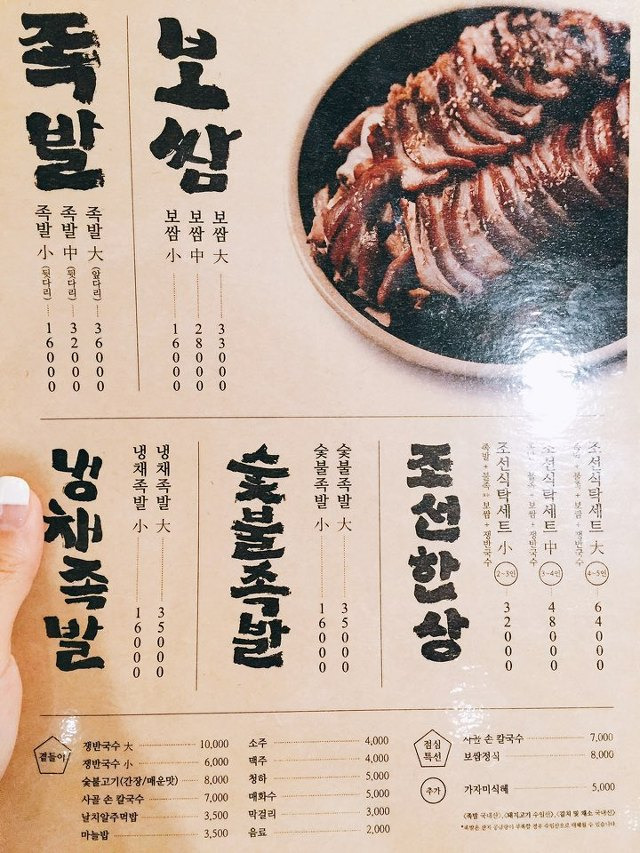 족발
족발 大 (앞다리) 36000
족발 中 (뒷다리) 32000
족발 小 (뒷다리) 16000
보쌈
보쌈 大 33000
보쌈 中 28000
보쌈 小 16000
냉채족발
냉채족발 大 35000
냉채족발 小 16000
숯불족발
숯불족발 大 35000
숯불족발 小 16000
조선한상
조선식탁세트 大 4~5인 64000
족발 + 불족 or 보쌈 + 쟁반국수
조선식탁세트 中 3~4인 48000
족발 + 불족 or 보쌈 + 쟁반국수
조선식탁세트 小 2~3인 32000
족발 + 불족 or 보쌈 + 쟁반국수
곁들이
쟁반국수 大 10,000
쟁반국수 小 6,000
숯불고기(간장/매운맛) 8,000
사골 손 칼국수 7,000
날치알주먹밥 3,500
마늘밥 3,500
소주 4,000
맥주 4,000
청하 5,000
매화수 5,000
막걸리 3,000
음료 2,000
점심특선
사골 손 칼국수 7,000
보쌈정식 8,000
추가
가자미식해 5,000
(족발 국내산), (돼지고기 수입산), (김치 및 채소 국내산)